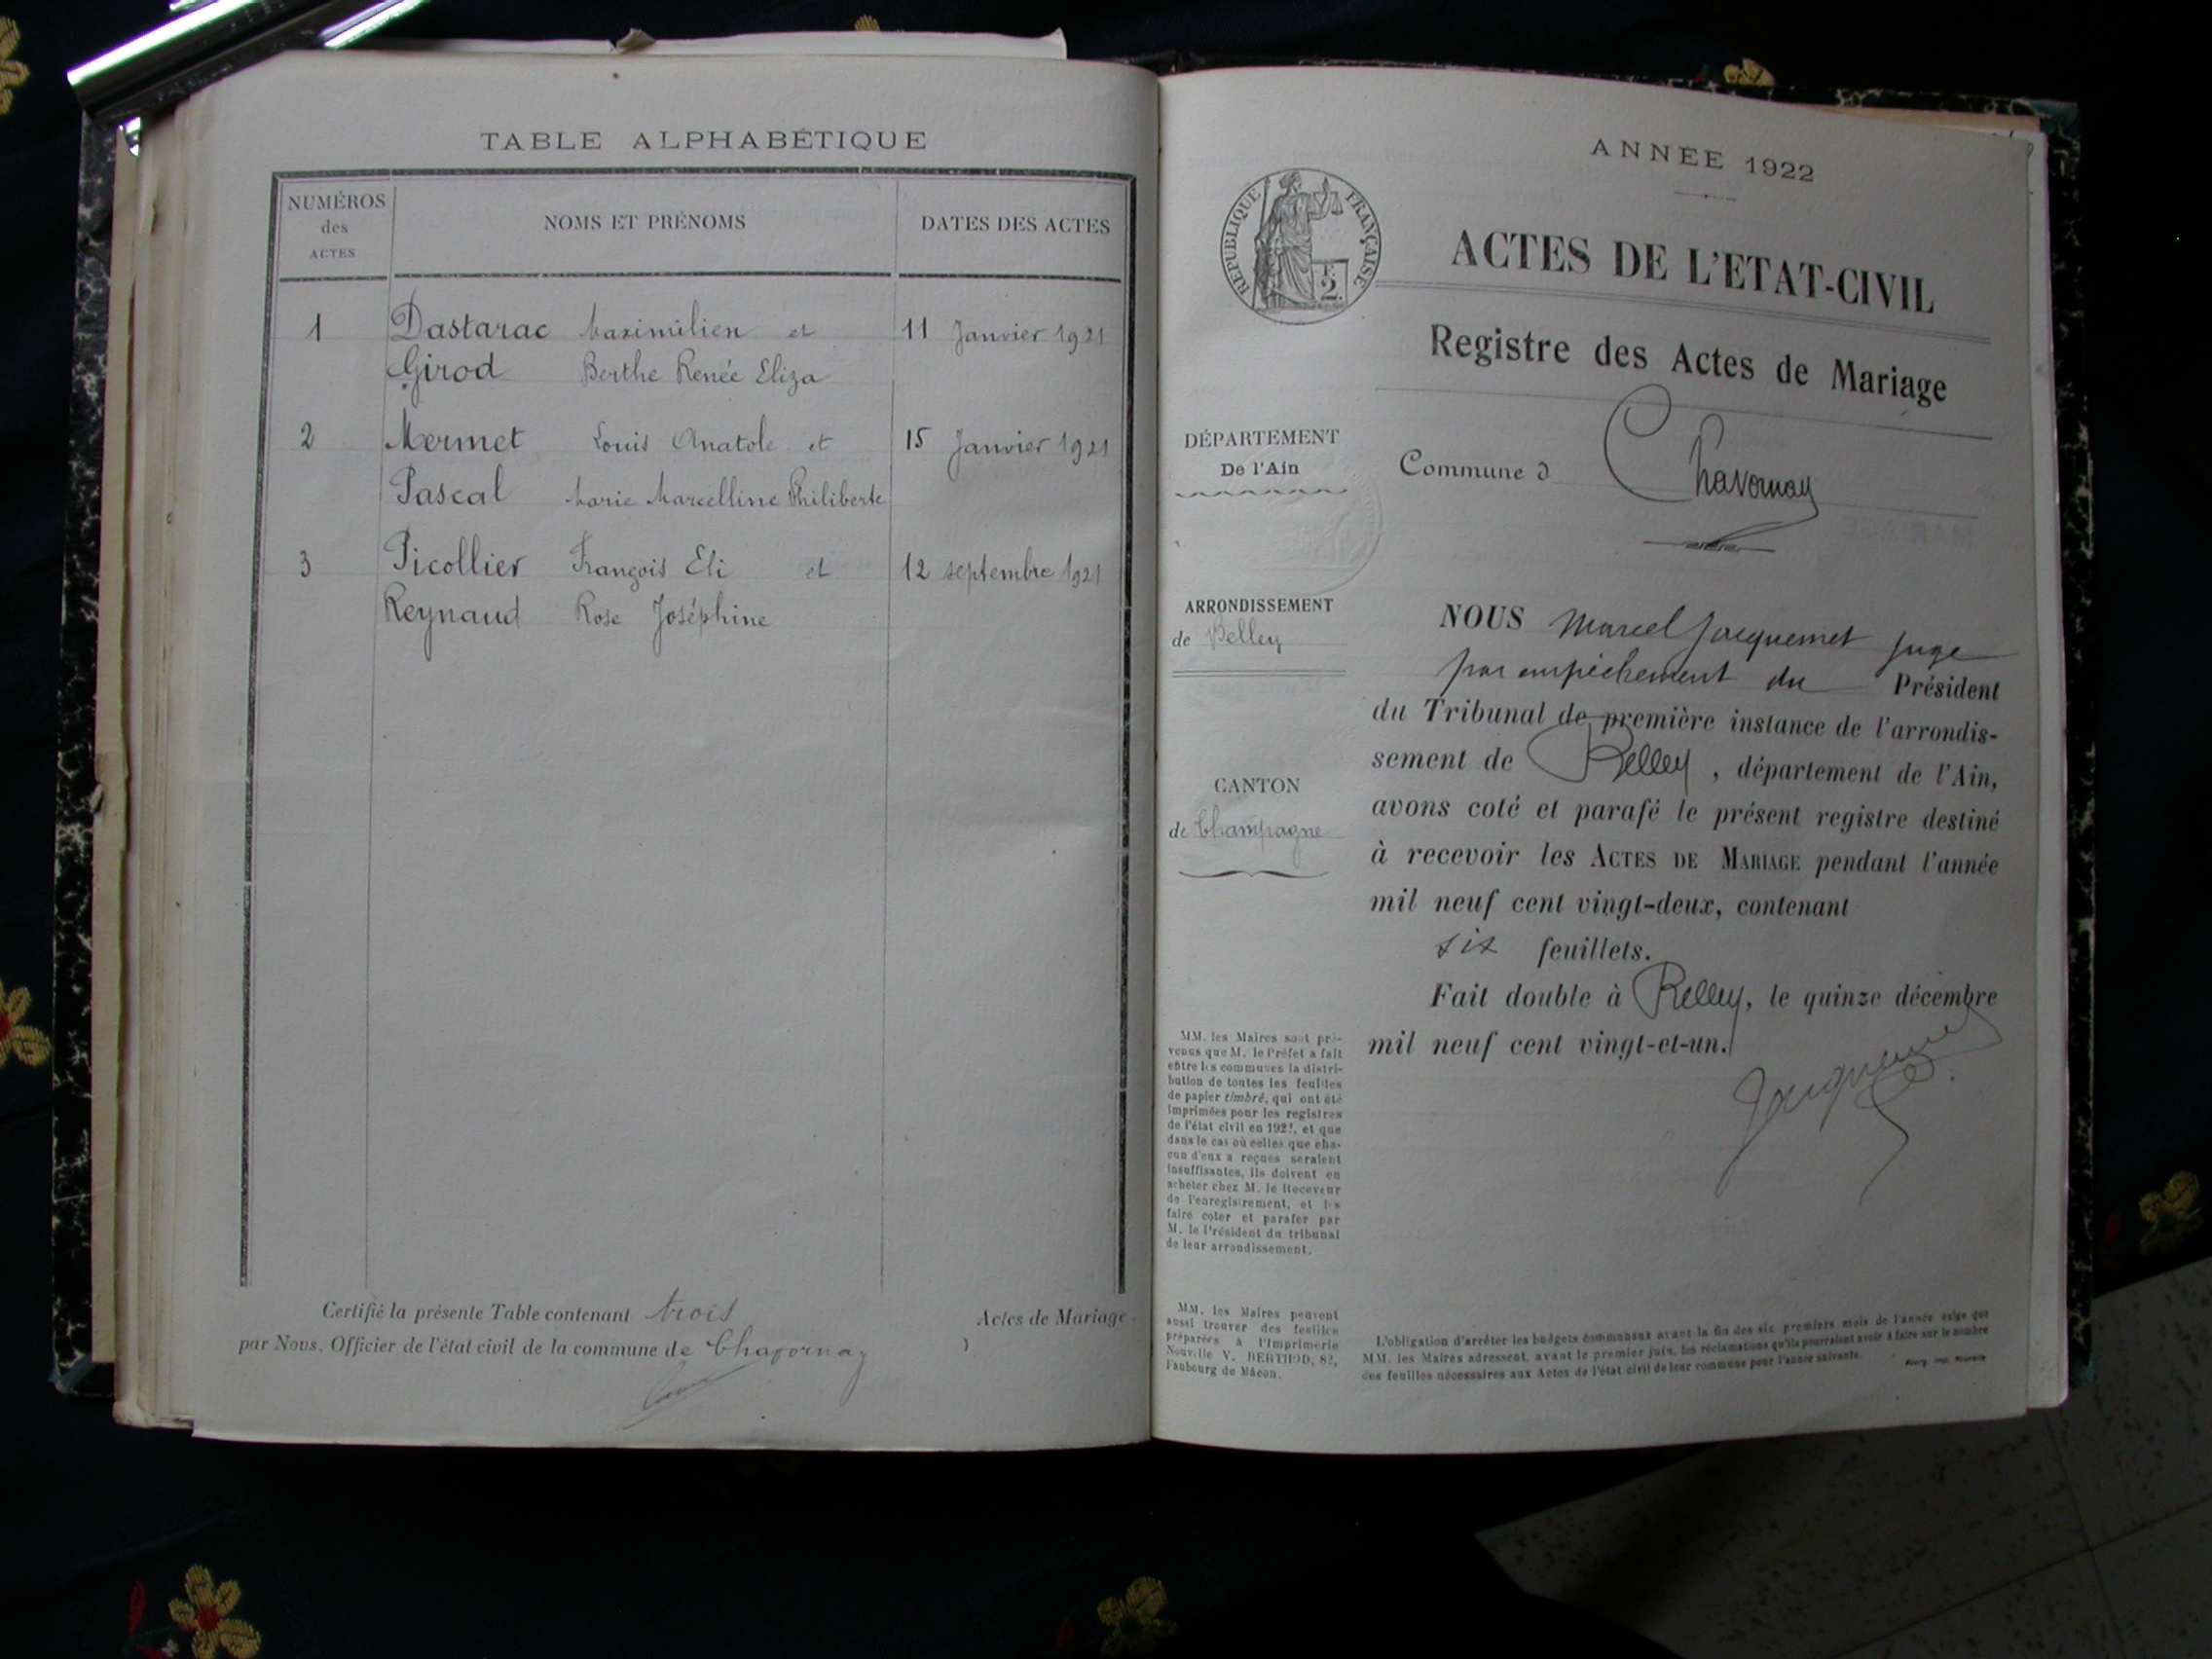 TABLE ALPHABÉTIQUE
NUMÉROS
des
ACTES
NOMS ET PRÉNOMS
DATES DES ACTES
1 Dastarac Maximilien et 11 Janvier 1921
Girod Berthe Renée Eliza
2 Mermet Louis Anatole et 15 Janvier 1921
Pascal Marie Marcelline Philiberte
3 Picollier François Eli et 12 septembre 1921
Reynaud Rose Joséphine
Certifié la présente Table contenant trois Actes de Mariage
par Nous, Officier de l'état civil de la commune de Chavornay
ANNÉE 1922
RÉPUBLIQUE FRANÇAISE
2
ACTES DE L'ETAT-CIVIL
Registre des Actes de Mariage
DÉPARTEMENT
De l'Ain
Commune d Chavornay
ARRONDISSEMENT
de Belley
CANTON
de Champagne
NOUS Marcel Jacquemet Juge
par empêchement du Président
du Tribunal de première instance de l'arrondis-
sement de Belley, département de l'Ain,
avons coté et parafé le présent registre destiné
à recevoir les ACTES DE MARIAGE pendant l'année
mil neuf cent vingt-deux, contenant
six feuillets.
Fait double à Belley, le quinze décembre
mil neuf cent vingt-et-un.
Jacquemet
MM. les Maires sont pré-
venus que M. le Préfet a fait
entre les communes la distri-
bution de toutes les feuilles
de papier timbré, qui ont été
imprimées pour les registres
de l'état civil en 1922, et que
dans le cas où celles que cha-
cun d'eux a reçues seraient
insuffisantes, ils doivent en
acheter chez M. le Receveur
de l'enregistrement, et les
faire coter et parafer par
M. le Président du tribunal
de leur arrondissement.
MM. les Maires peuvent
aussi trouver des feuilles
préparées à l'Imprimerie
Nouvelle V. BERTHOD, 82,
Faubourg de Mâcon.
L'obligation d'arrêter les budgets communaux avant la fin des six premiers mois de l'année exige que
MM. les Maires adressent, avant le premier juin, les réclamations qu'ils pourraient avoir à faire sur le nombre
des feuilles nécessaires aux Actes de l'état civil de leur commune pour l'année suivante.
Bourg, imp. Nouvelle